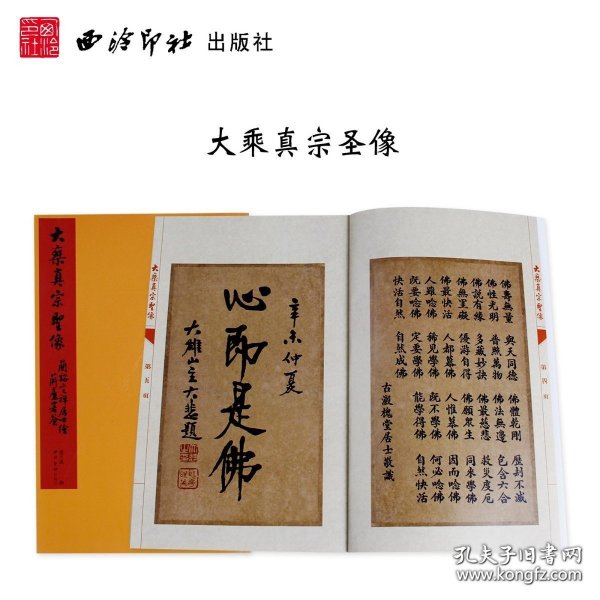 西泠印社 出版社
大乘真宗圣像
大乘真宗聖像
大乘真宗聖像
第五頁
辛未仲夏
心即是佛
大雄山主大悲題
大乘真宗聖像
第四頁
佛壽無量 與天同德 佛體乾剛 歷劫不滅
佛性光明 普照萬物 佛法無邊 包含六合
佛說有緣 多藏妙訣 佛最慈悲 救災度厄
佛無罣礙 優游自得 佛願眾生 同來學佛
佛最快活 人都慕佛 人惟慕佛 因而唸佛
人雖唸佛 稀見學佛 既不學佛 何必唸佛
既要唸佛 定要學佛 能學得佛 自然快活
快活自然 自然成佛
古瀔槐堂居士敬識
孔夫子旧书网
www.kongfz.com